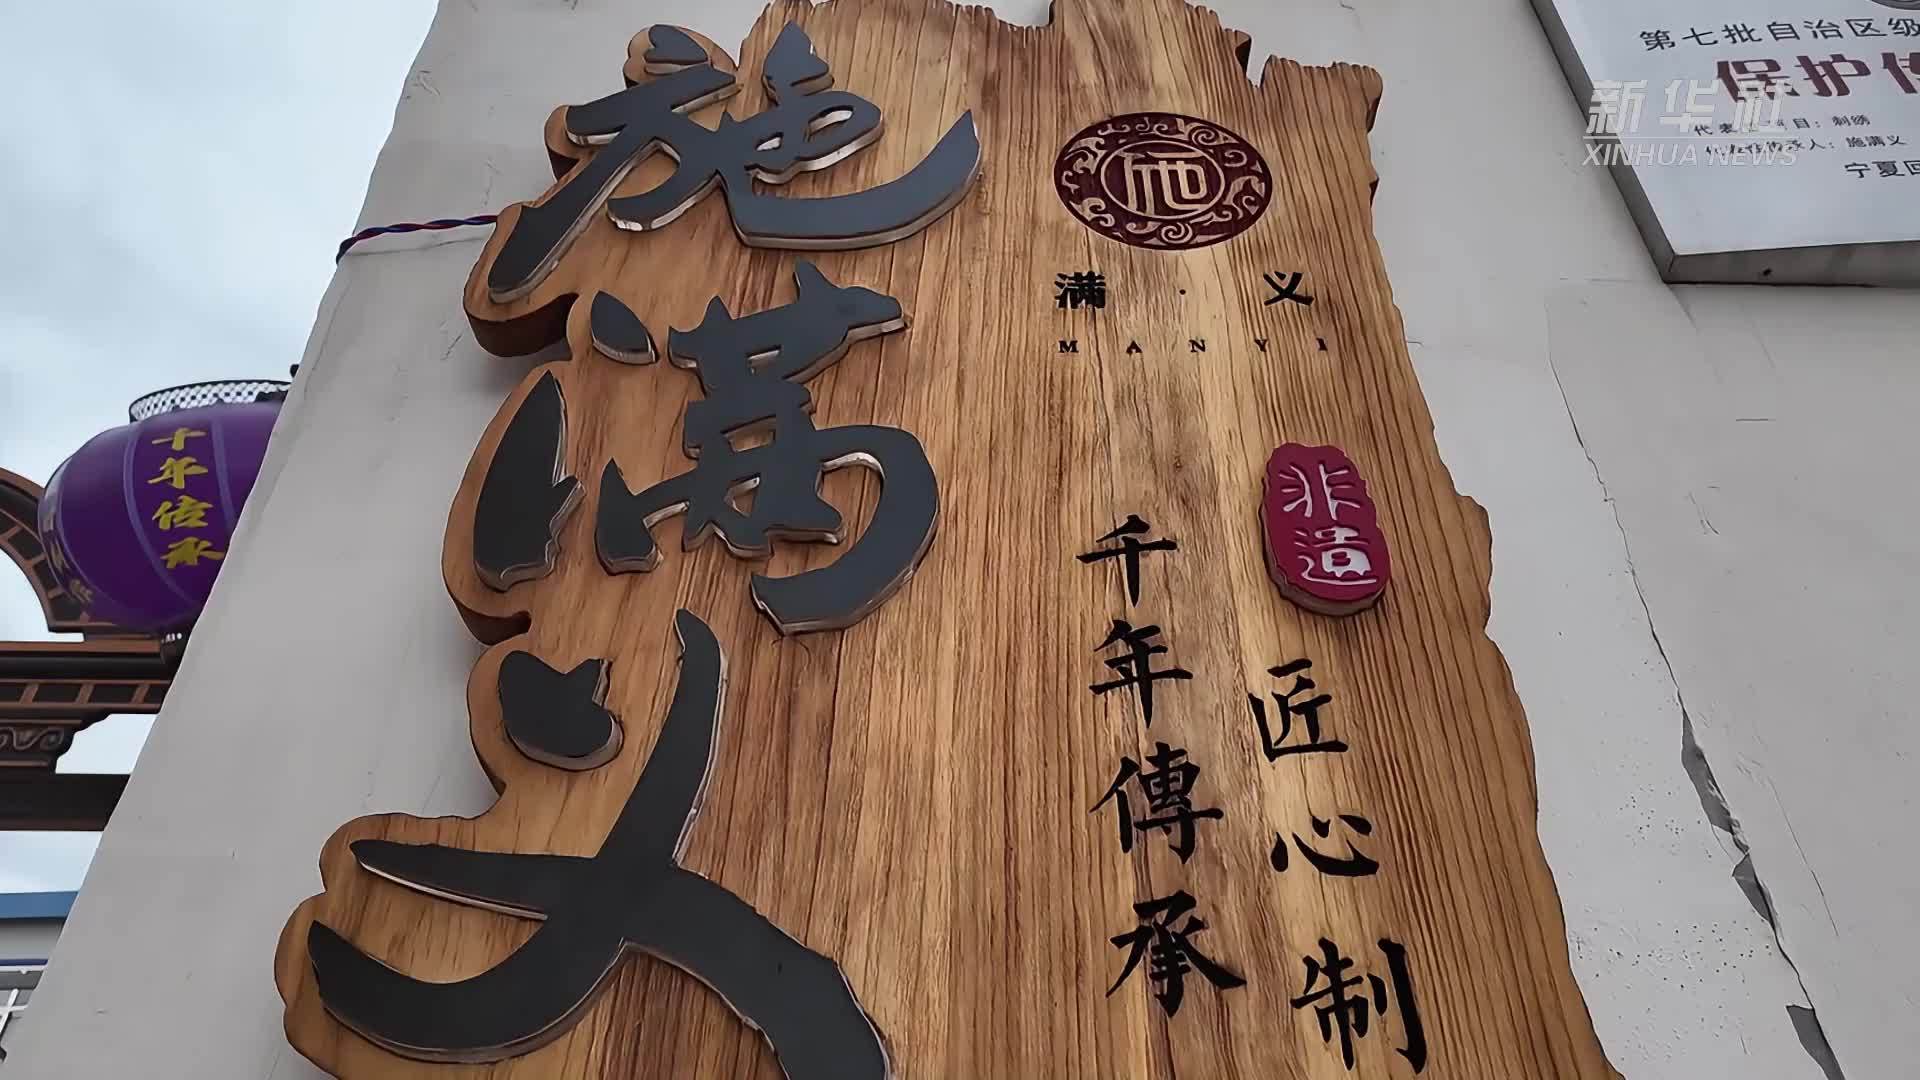 施满义
施
满·义
MANYI
非遗
千年傳承
匠心制
千年传承
第七批自治区级
保护传
代表性项目：刺绣
代表性传承人：施满义
宁夏回
新华社
XINHUA NEWS